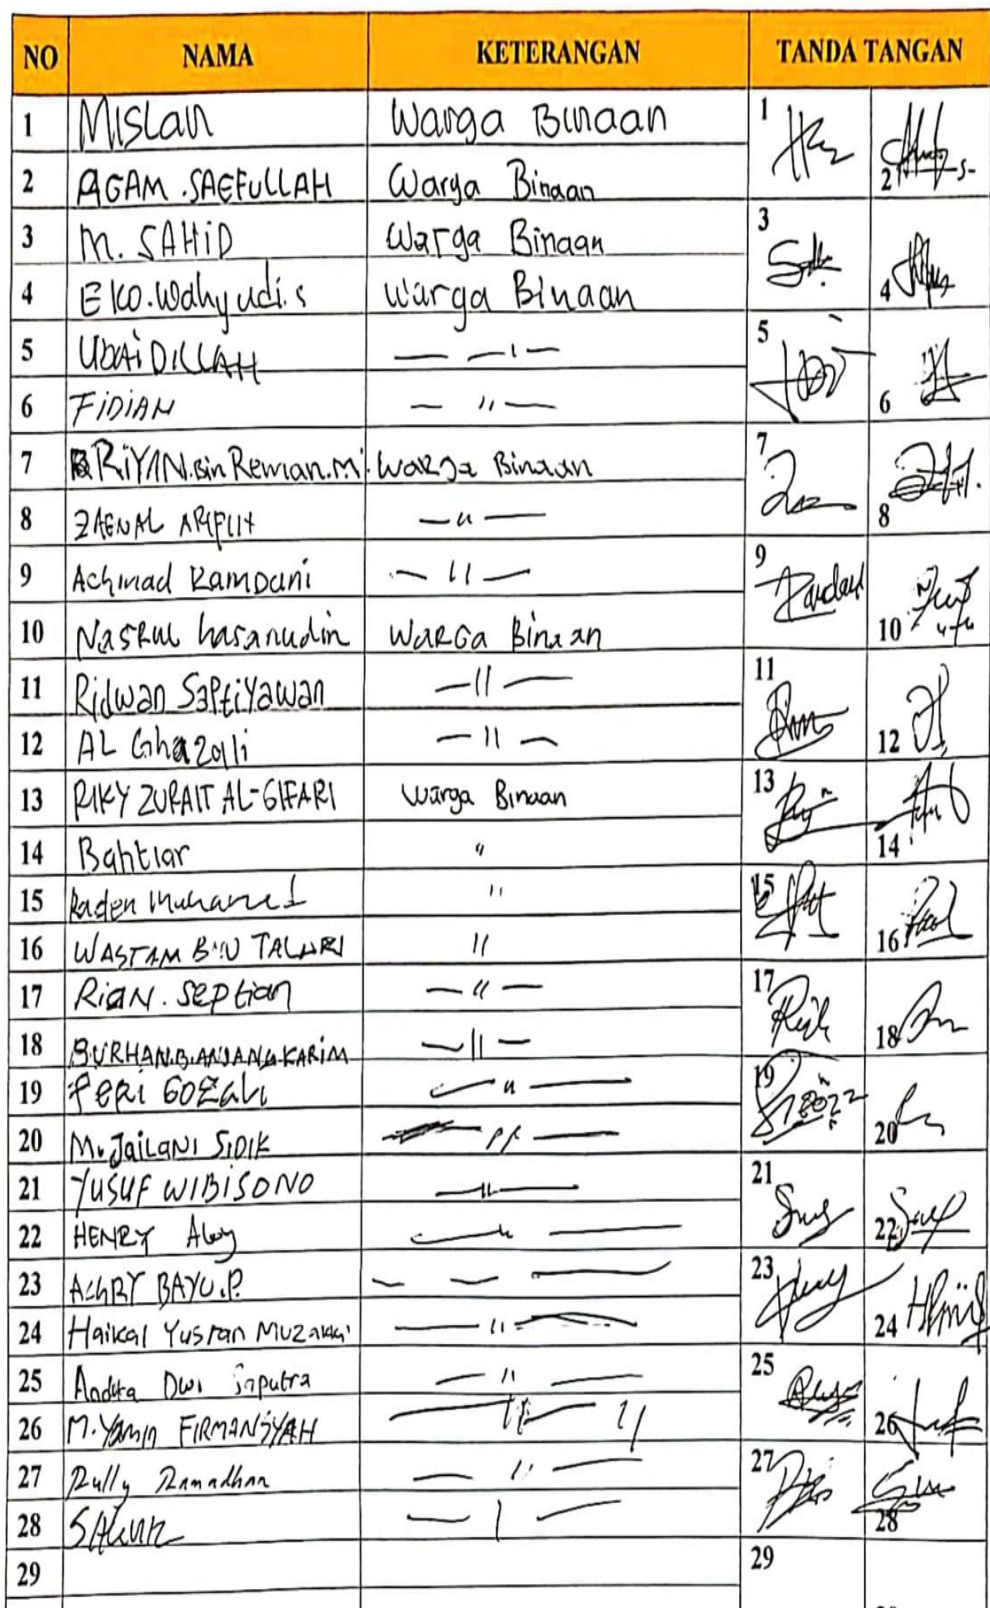 NO NAMA KETERANGAN TANDA TANGAN
1 Mislan Warga Binaan 1
2 AGAM .SAEFULLAH Warga Binaan 2
3 M. SAHiD Warga Binaan 3
4 EKO.Wahyudi.s Warga Binaan 4
5 UBAiDILLAH — — ı — 5
6 FiDiAN — " — 6
7 RiYAN.Bin Reman.M. Warga Binaan 7
8 ZAENAL ARIFIN — " — 8
9 Achmad Ramdani — " — 9
10 Nasrul hasanudin WARGA Binaan 10
11 Ridwan Saptiyawan — " — 11
12 AL Ghazali — " — 12
13 RIKY ZURAIT AL-GIFARI Warga Binaan 13
14 Bahtiar " 14
15 Raden Muhamed " 15
16 WASTAM BIN TALARI " 16
17 RiaN. Septian — " — 17
18 BURHAN.B.ANJANG KARIM — " — 18
19 FERi GOZALi — " — 19
20 M.JaiLANI SIDIK " — 20
21 YUSUF WIBISONO — " — 21
22 HENRY — " — 22
23 BAYU.P. — — — 23
24 Haikal Yusran Muzakki — " — 24
25 Dwi Saputra — " — 25
26 M.Yamin FIRMANSYAH — " — " 26
27 Rully Ramadhan — " — 27
28 — | — 28
29 29